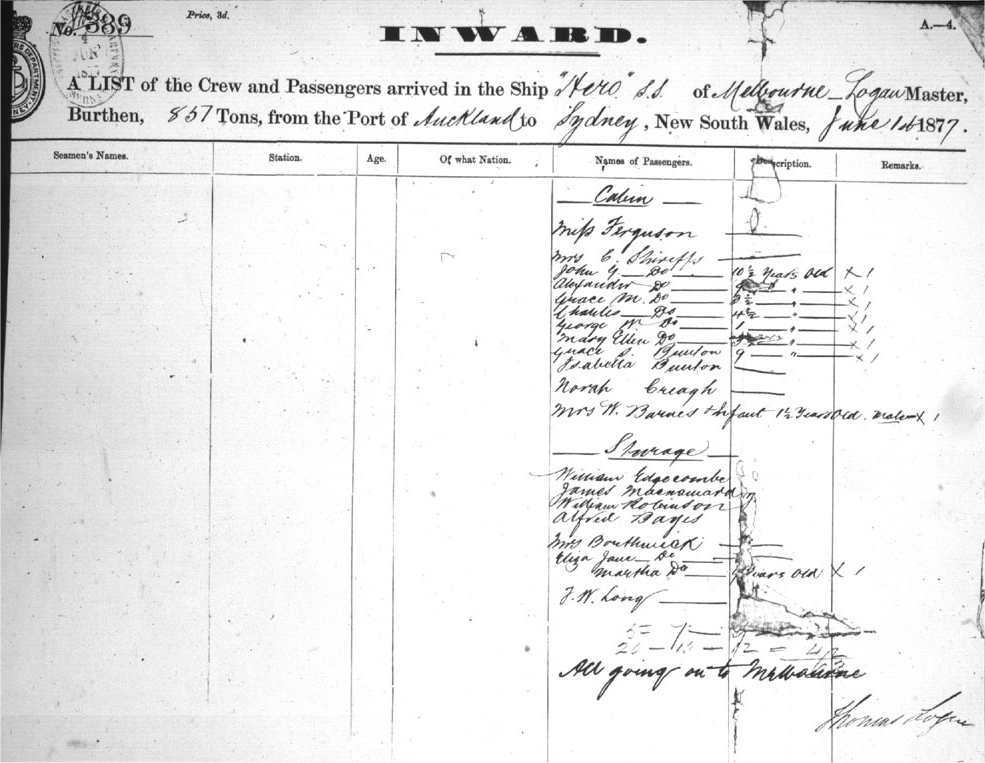 No. 389
Price, 3d.
INWARD.
A.—4.
A LIST of the Crew and Passengers arrived in the Ship "Hero" S.S. of Melbourne – Logan Master,
Burthen, 857 Tons, from the Port of Auckland to Sydney, New South Wales, June 1877.
Seamen's Names. Station. Age. Of what Nation. Names of Passengers. Description. Remarks.
Cabin
Miss Ferguson
Mrs E. Shireffs
John G. Do 10½ Years Old X 1
Alexander Do " X 1
Grace M. Do " X 1
Charles Do 4½ " X 1
George W. Do 1 " X 1
Mary Ellen Do
Grace S. Bunton 9 " X 1
Isabella Bunton
Norah Creagh
Mrs W. Barnes & Infant 1½ Years Old. male X 1
Steerage
William Edgecombe
James
William Robinson
Alfred Bayes
Mrs Borthwick
Eliza Jane Do
Martha Do Years Old X 1
F. W. Long
20 – – 12 = 42
All going on to Melbourne
Thomas Logan